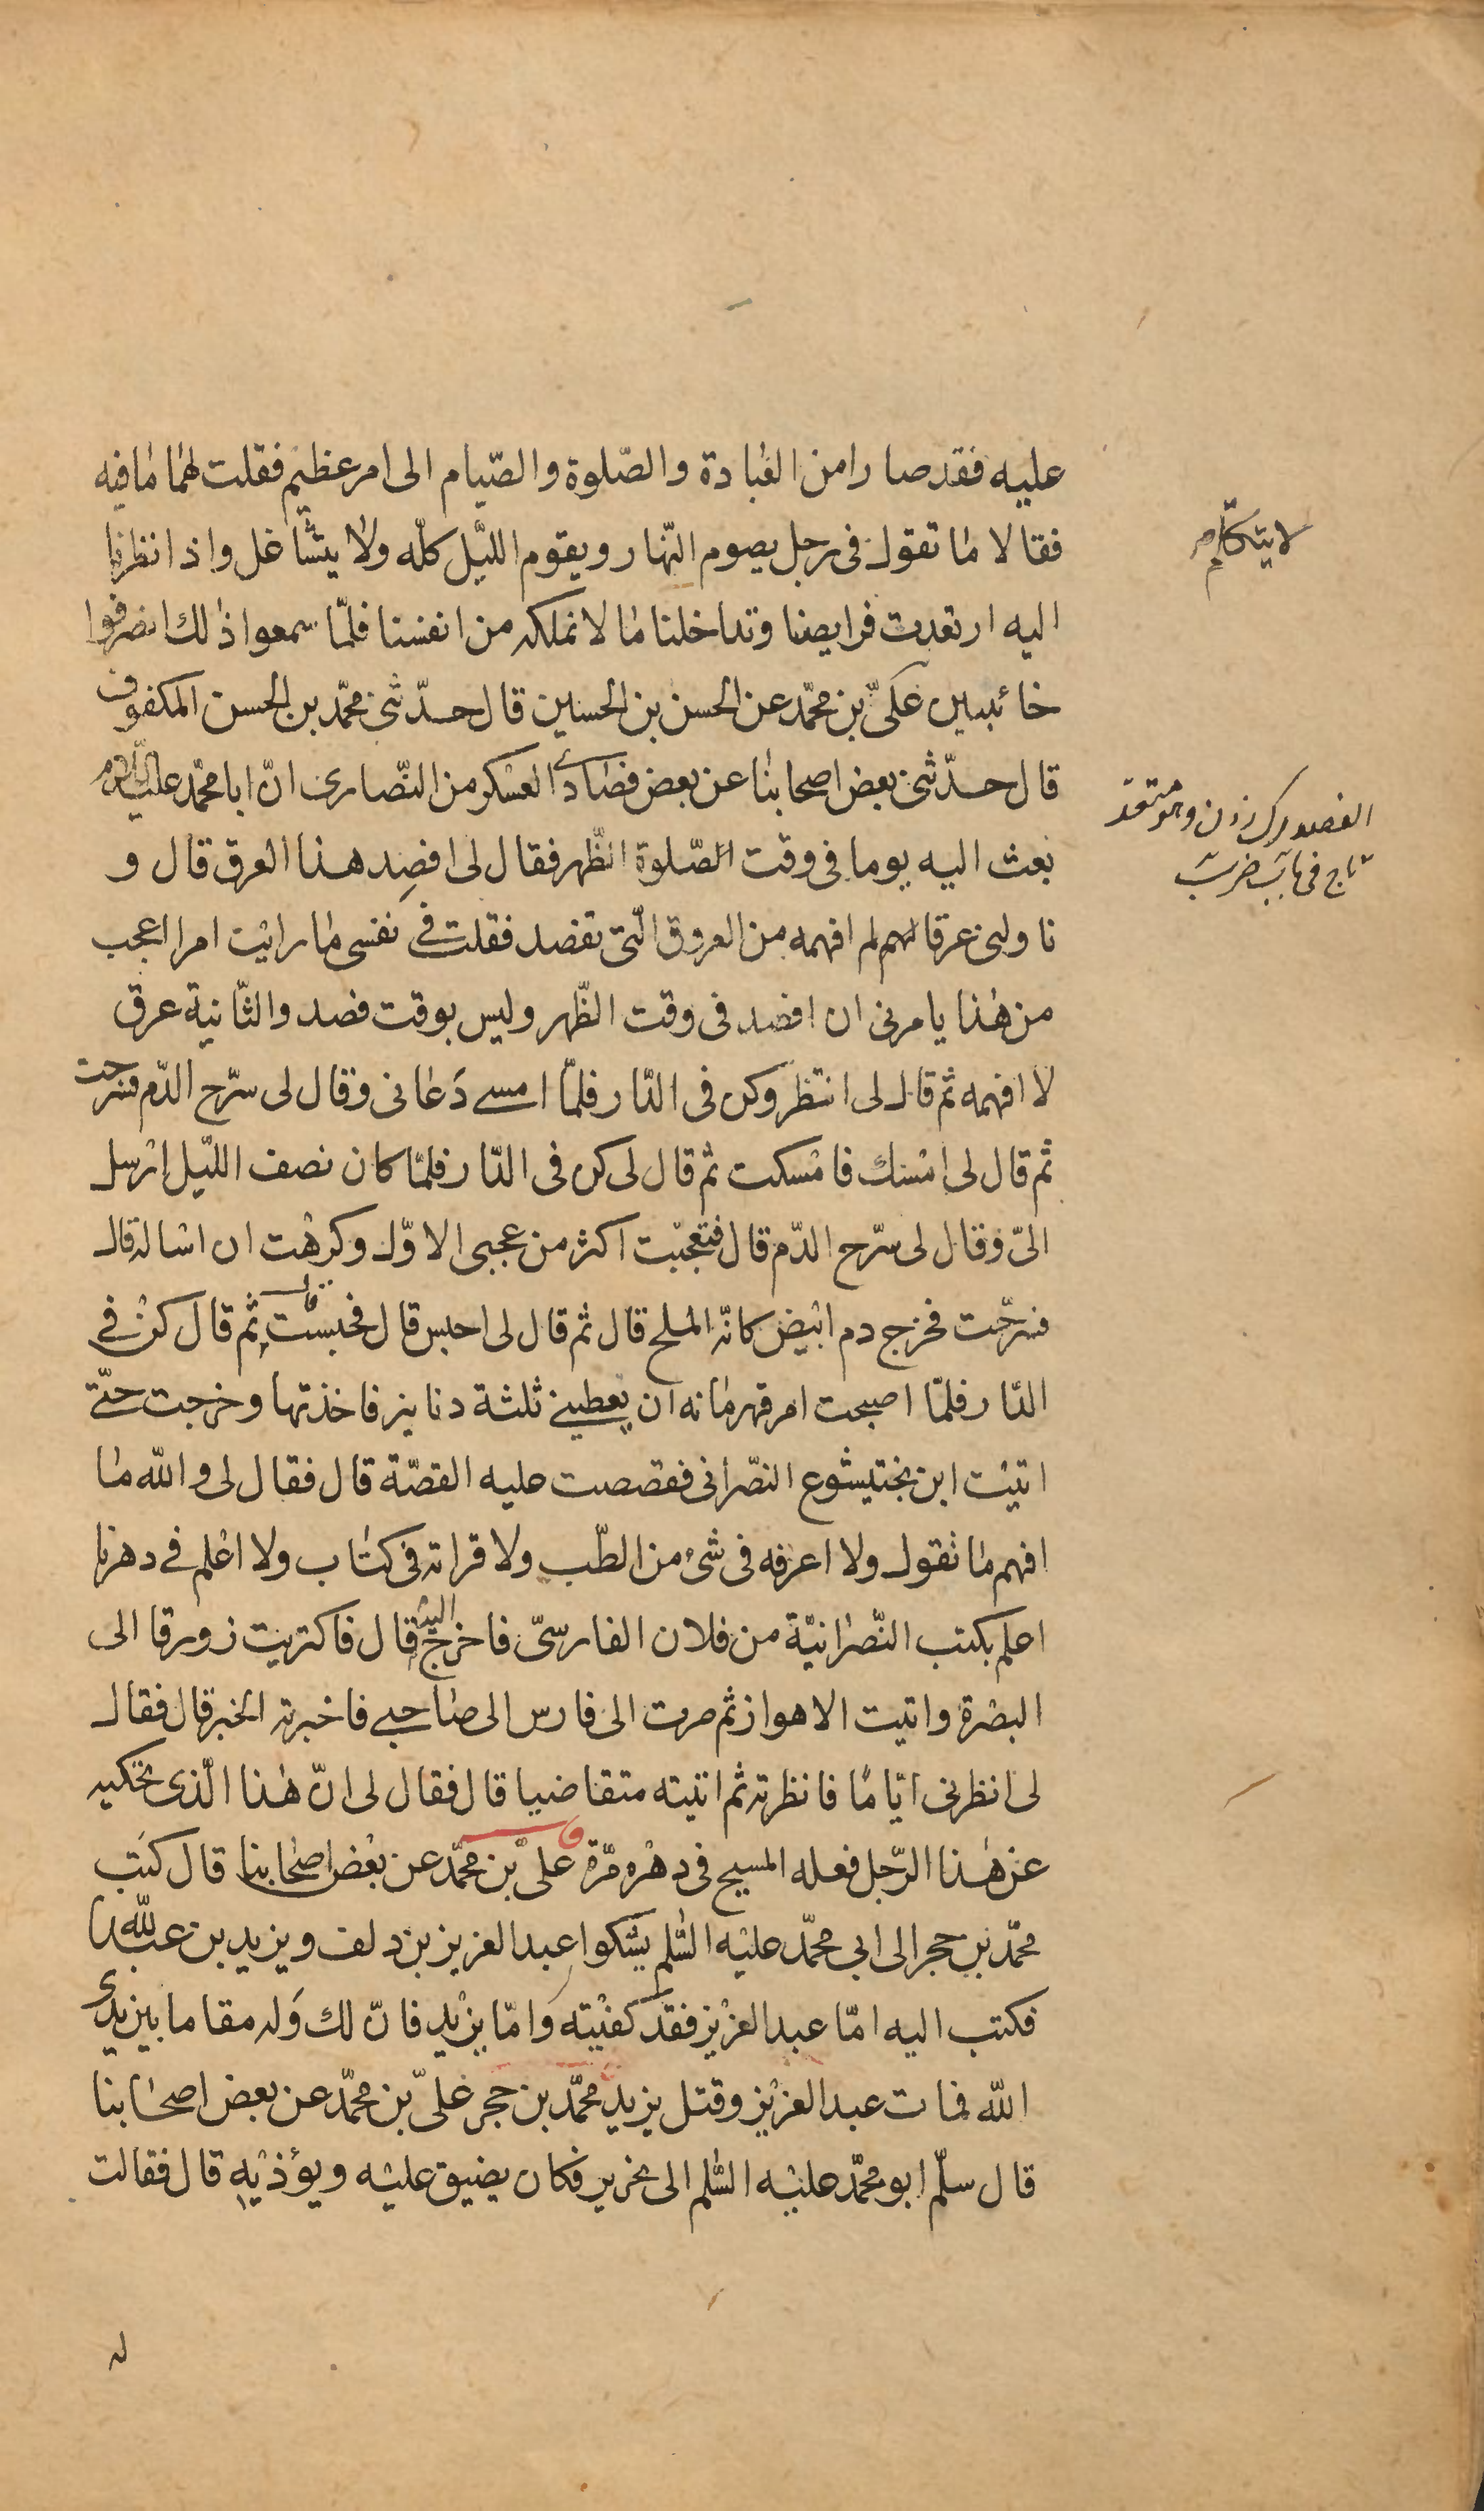 عليه فقد صارا من العبادة والصّلوة والصّيام الى امر عظيم فقلت لهما ما فيه
فقالا ما تقول فى رجل يصوم النّهار ويقوم اللّيل كلّه ولا يتشاغل واذا نظرنا
لا يتكلّم
اليه ارتعدت فرايصنا وتداخلنا ما لا نملكه من انفسنا فلمّا سمعوا ذلك انصرفوا
خائبين علىّ بن محمّد عن الحسن بن الحسين قال حدّثنى محمّد بن الحسن المكفوف
قال حدّثنى بعض اصحابنا عن بعض فصّادى العسكر من النّصارى انّ ابا محمّد عليه السّلام
الفصد رك زدن وهو متعد
تاج فى باب ضرب
بعث اليه يوما فى وقت الصّلوة الظّهر فقال لى افصِد هذا العرق قال و
ناولنى عرقا لم افهمه من العروق الّتى تفصد فقلت فى نفسى ما رايت امرا اعجب
من هذا يامرنى ان افصد فى وقت الظّهر وليس بوقت فصد والثّانية عرق
لا افهمه ثم قال لى انتظر وكن فى الدّار فلمّا امسى دَعانى وقال لى سرّح الدّم فسرحت
ثم قال لى امسك فامسكت ثم قال لى كن فى الدّار فلمّا كان نصف اللّيل ارسل
الىّ وقال لى سرّح الدّم قال فتعجّبت اكثر من عجبى الاوّل وكرهت ان اساله قال
فسرّحت فخرج دم ابيض كانّه الملح قال ثم قال لى احبس قال فحبست ثم قال كن فى
الدّار فلمّا اصبحت امر قهرمانه ان يعطينى ثلثة دنانير فاخذتها وخرجت حتّى
اتيت ابن بختيشوع النّصرانى فقصصت عليه القصّة قال فقال لى والله ما
افهم ما تقول ولا اعرفه فى شىء من الطّب ولا قراته فى كتاب ولا اعلم فى دهرنا
اعلم بكتب النّصرانيّة من فلان الفارسىّ فاخرج اليه قال فاكتريت زورقا الى
البصرة واتيت الاهواز ثم صرت الى فارس الى صاحبى فاخبرته الخبر قال فقال
لى انظرنى ايّاما فانظرته ثم اتيته متقاضيا قال فقال لى انّ هذا الّذى تحكيه
عن هذا الرّجل فعله المسيح فى دهره مرّة علىّ بن محمّد عن بعض اصحابنا قال كتب
محمّد بن حجر الى ابى محمّد عليه السّلم يشكوا عبد العزيز بن دلف ويزيد بن عبد الله
فكتب اليه امّا عبد العزيز فقد كفيته وامّا يزيد فانّ لك وله مقاما بين يدى
الله فمات عبد العزيز وقتل يزيد محمّد بن حجر علىّ بن محمّد عن بعض اصحابنا
قال سلّم ابو محمّد عليه السّلم الى نحرير فكان يضيق عليه ويؤذيه قال فقالت
له